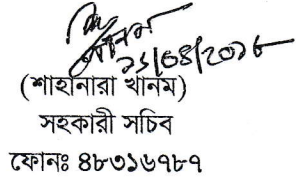 ১১/০৪/২০১৮
(শাহানারা খানম)
সহকারী সচিব
ফোনঃ ৪৮৩১৬৭৮৭